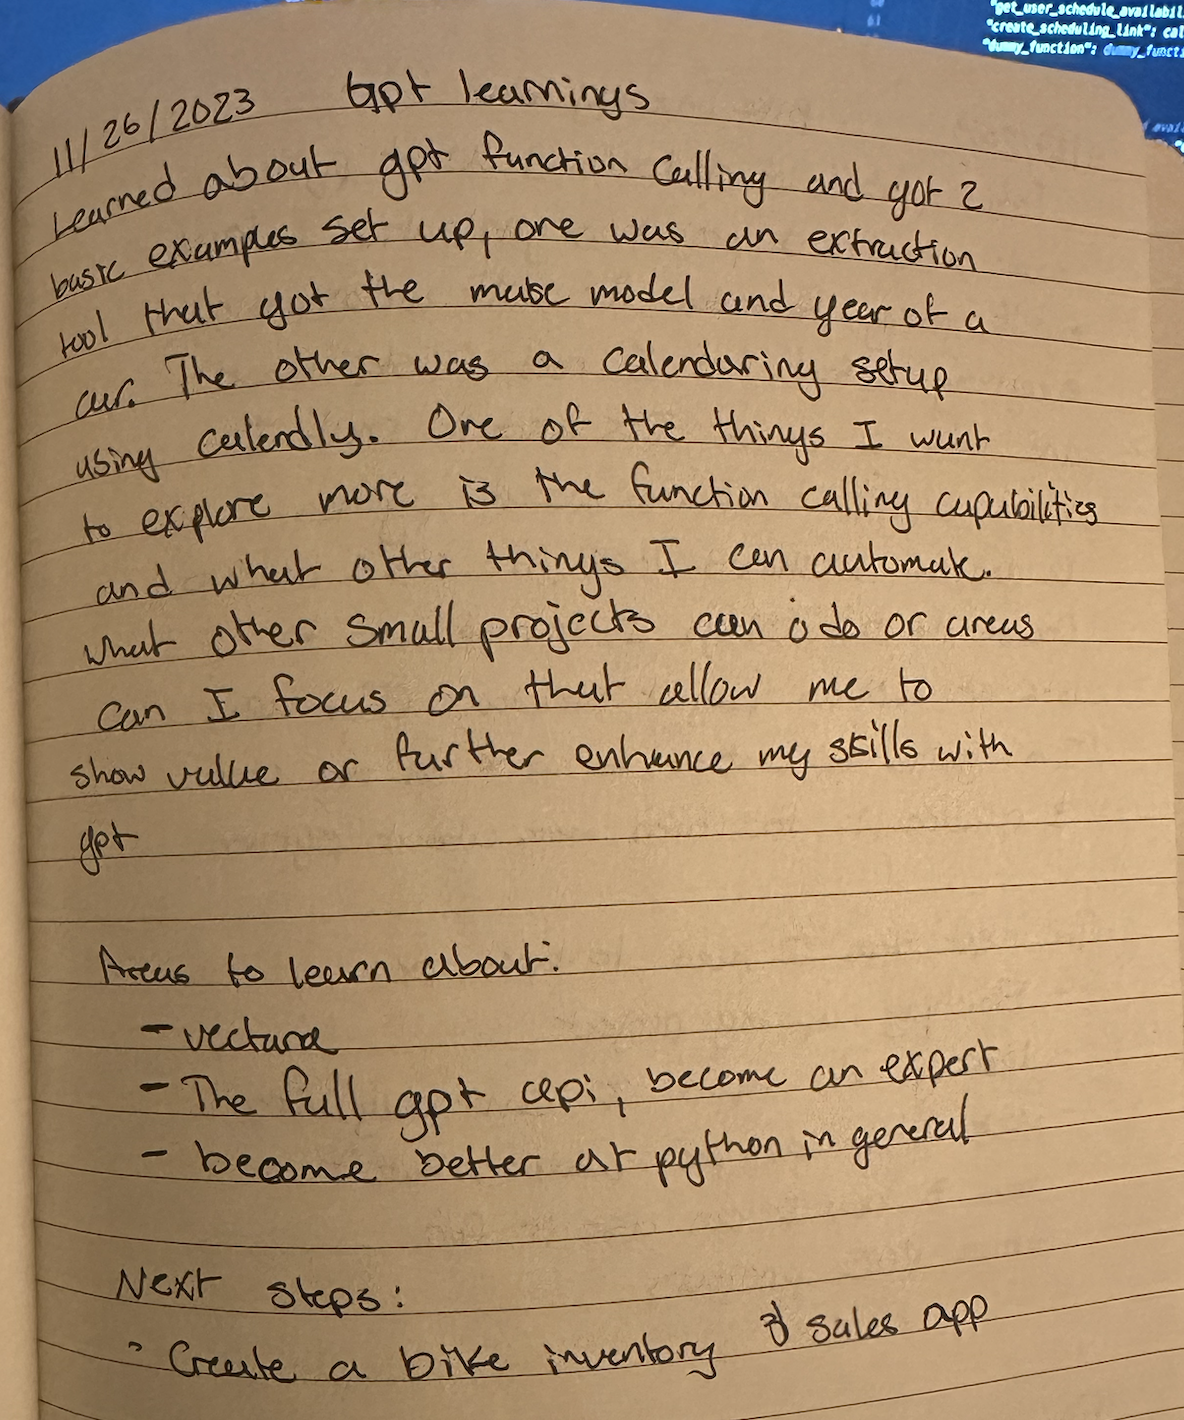 "get_user_schedule_availabil
"create_scheduling_link": cal
"dummy_function": dummy_funct
11/26/2023 Gpt learnings
Learned about gpt function Calling and got 2
basic examples set up, one was an extraction
tool that got the make model and year of a
car. The other was a Calendaring setup
using Calendly. One of the things I want
to explore more is the function calling capabilities
and what other things I can automate.
what other small projects can i do or areas
Can I focus on that allow me to
show value or further enhance my skills with
gpt
Areas to learn about:
- vectara
- The full gpt api, become an expert
- become better at python in general
Next Steps:
Create a bike inventory & sales app